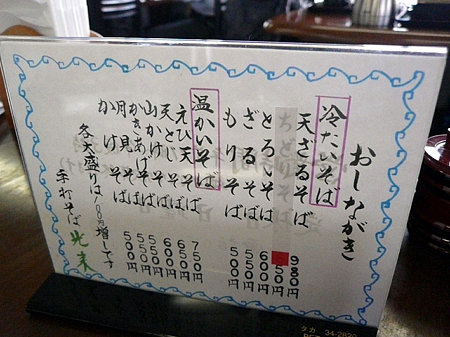 おしながき
冷たいそば
天ざるそば 980円
50円
とろろそば 600円
ざるそば 550円
もりそば 500円
温かいそば
えび天そば 750円
天とじそば 650円
山かけそば 600円
かきあげそば 550円
月見そば 550円
かけそば 500円
各大盛りは100円増しです
手打そば
タカ 34-2820